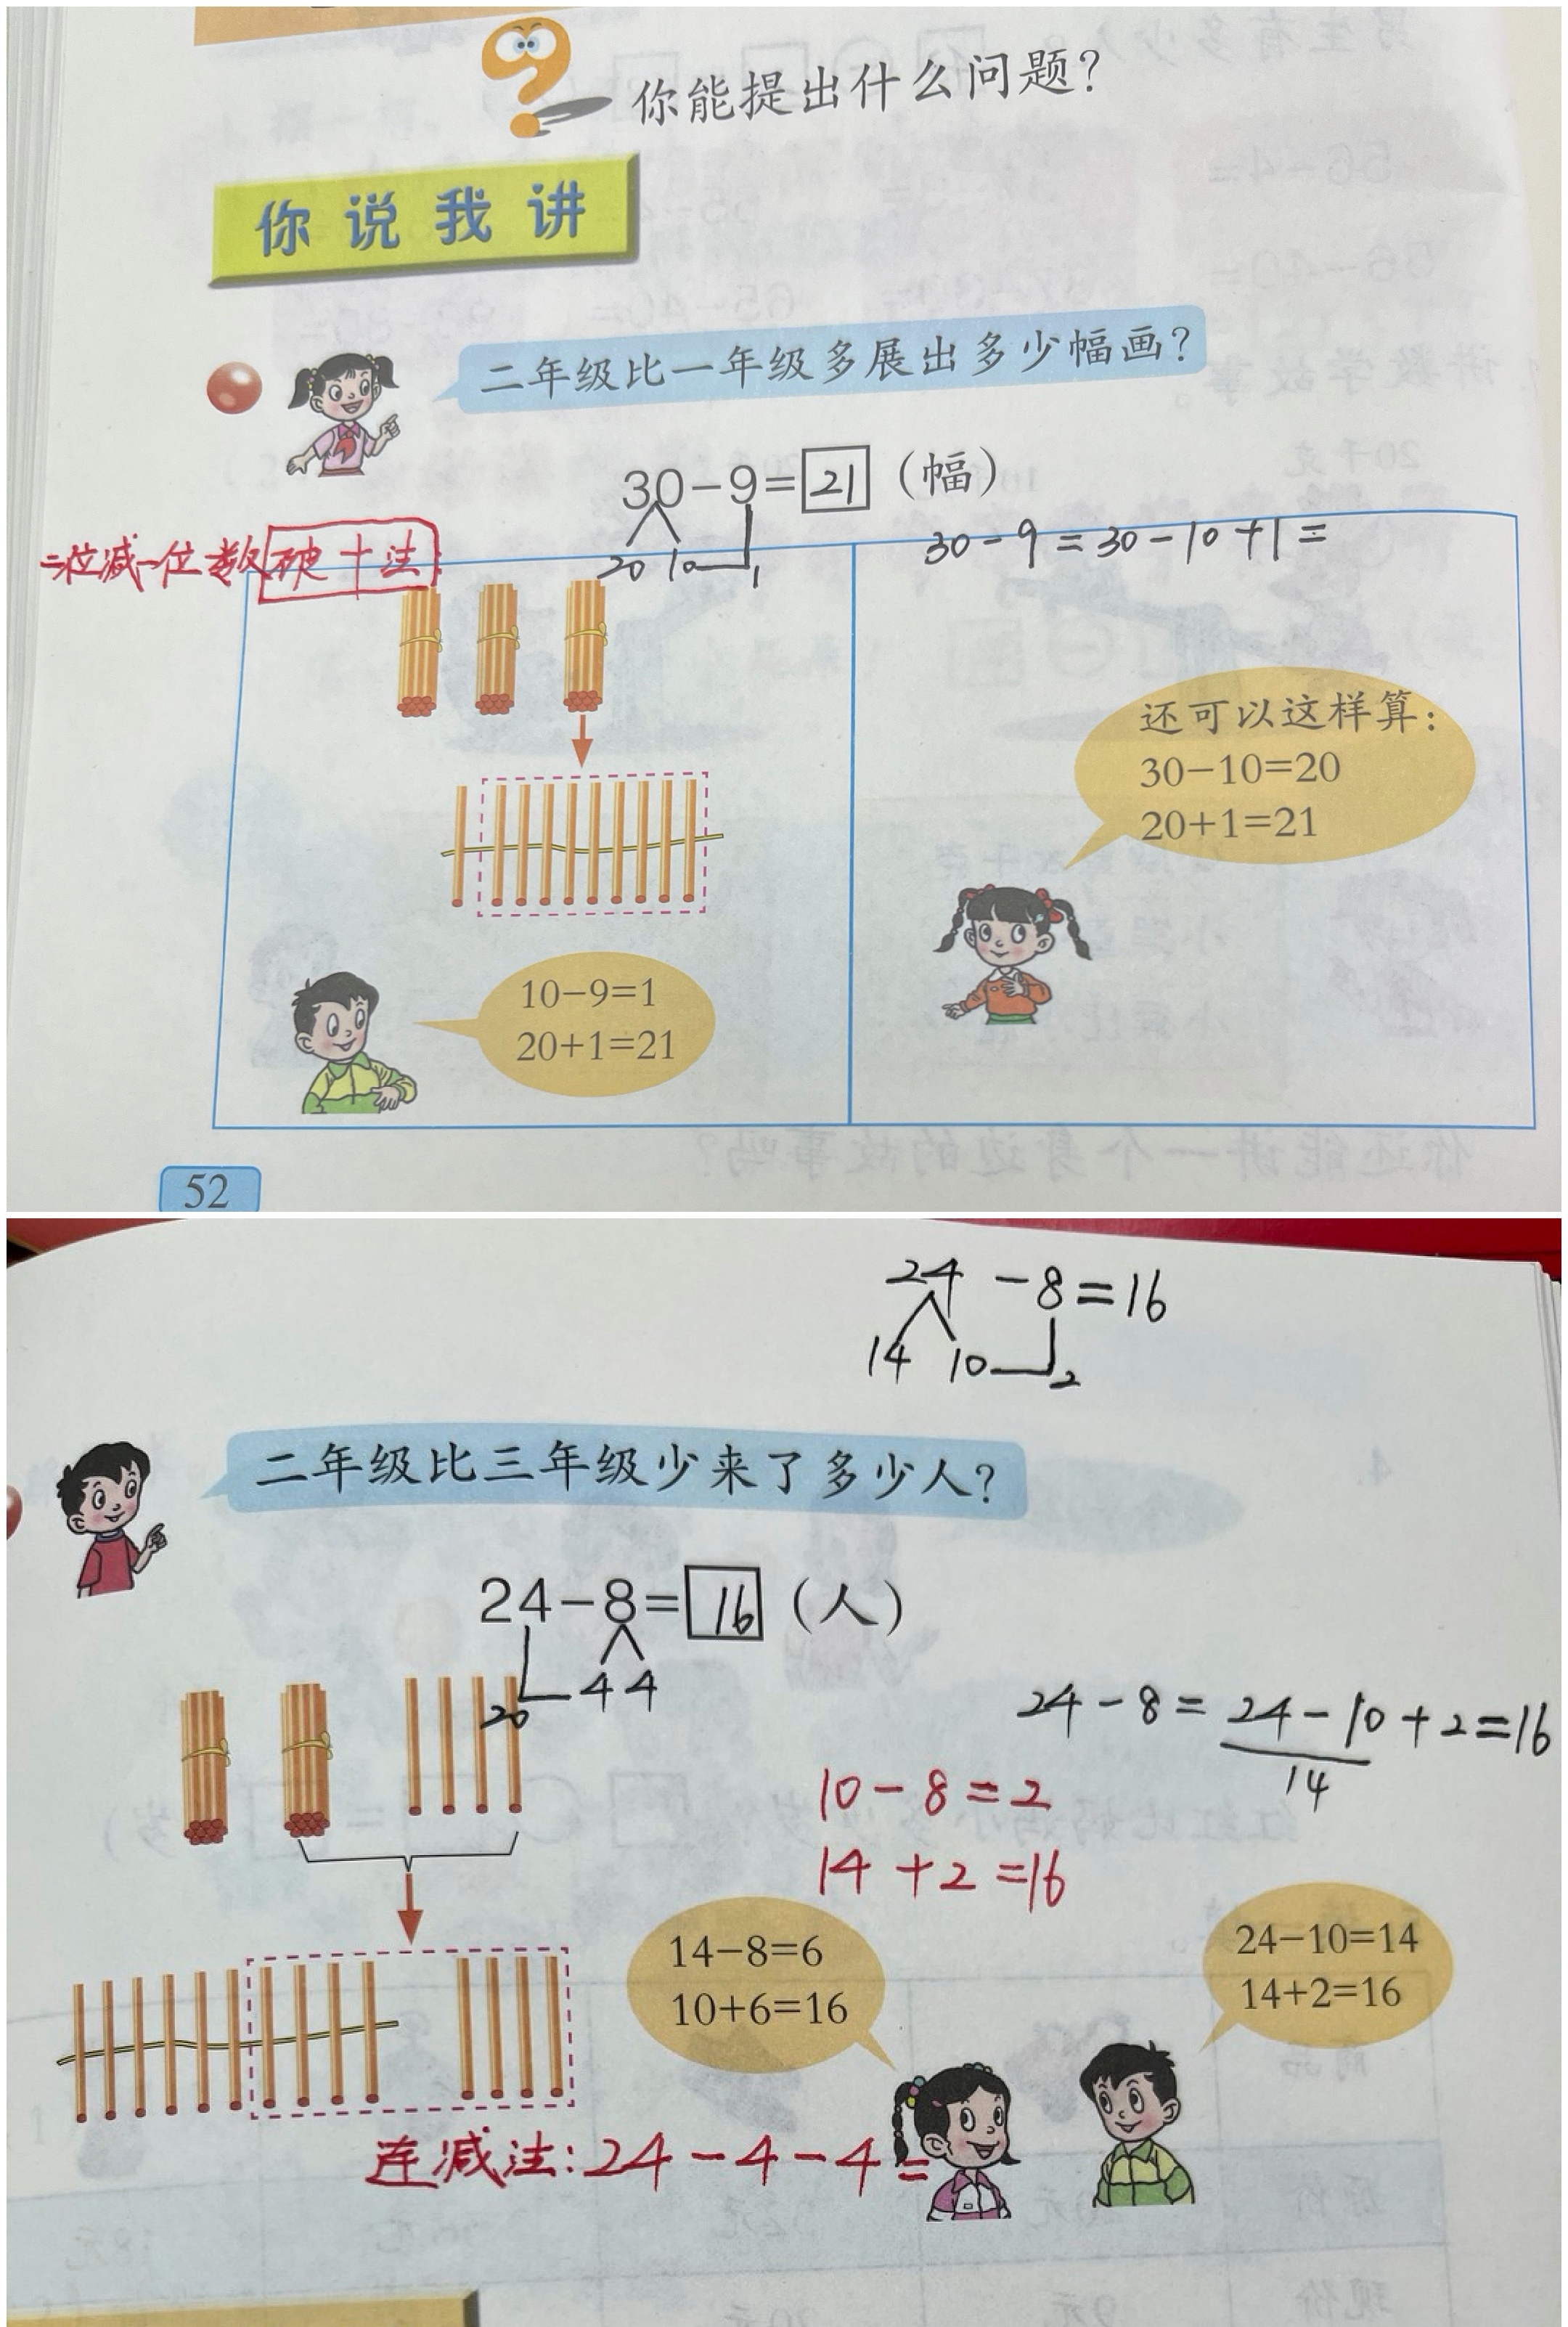 你能提出什么问题？
你说我讲
二年级比一年级多展出多少幅画？
30-9=21（幅）
20 10 1
二位减一位数破十法
30-9=30-10+1=
还可以这样算：
30-10=20
20+1=21
10-9=1
20+1=21
52
24-8=16
14 10 2
二年级比三年级少来了多少人？
24-8=16（人）
20 4 4
24-8=24-10+2=16
14
10-8=2
14+2=16
14-8=6
10+6=16
24-10=14
14+2=16
连减法：24-4-4=